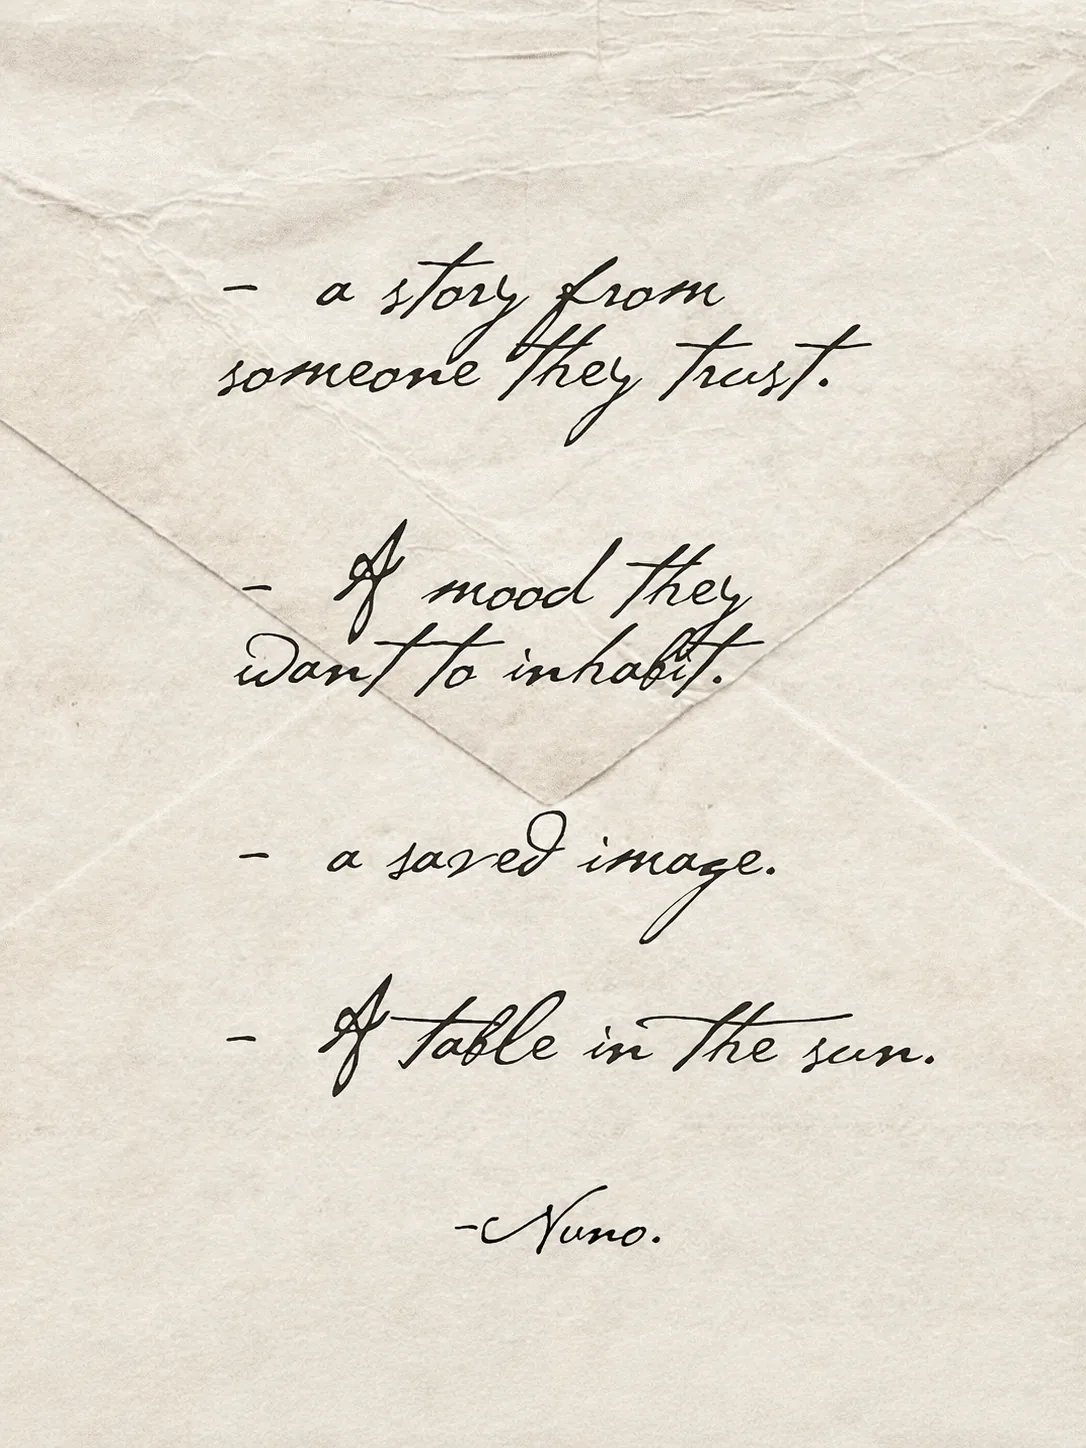 - a story from
someone they trust.
- A mood they
want to inhabit.
- a saved image.
- A table in the sun.
-Nuno.